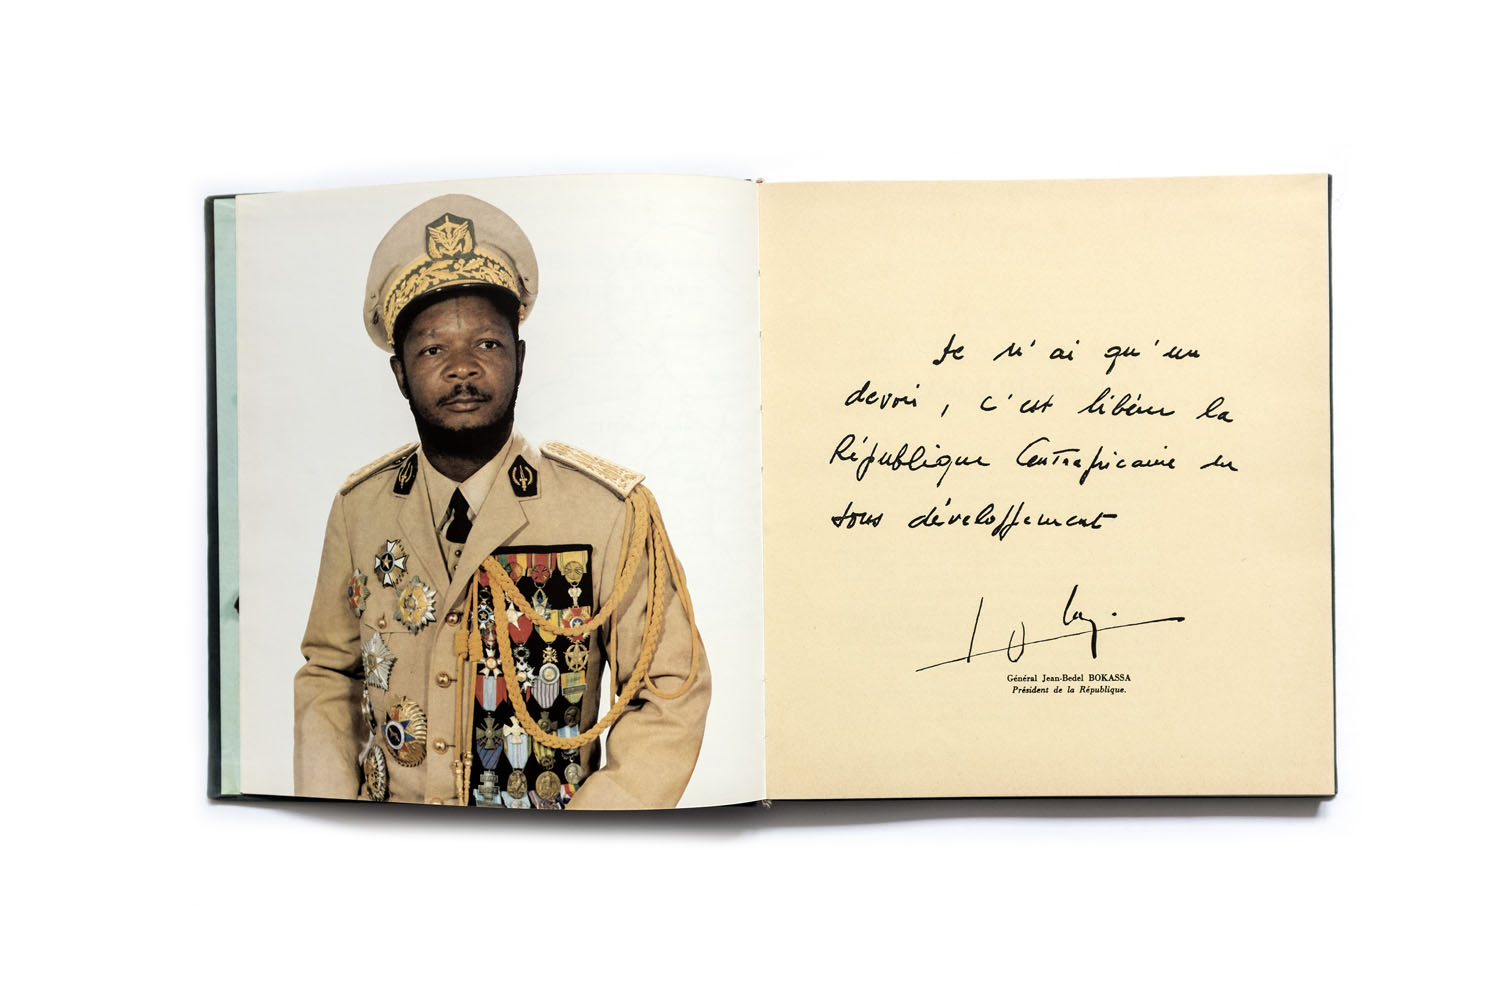 Je n'ai qu'un
devoir, c'est libérer la
République Centrafricaine du
sous développement
Général Jean-Bedel BOKASSA
Président de la République.